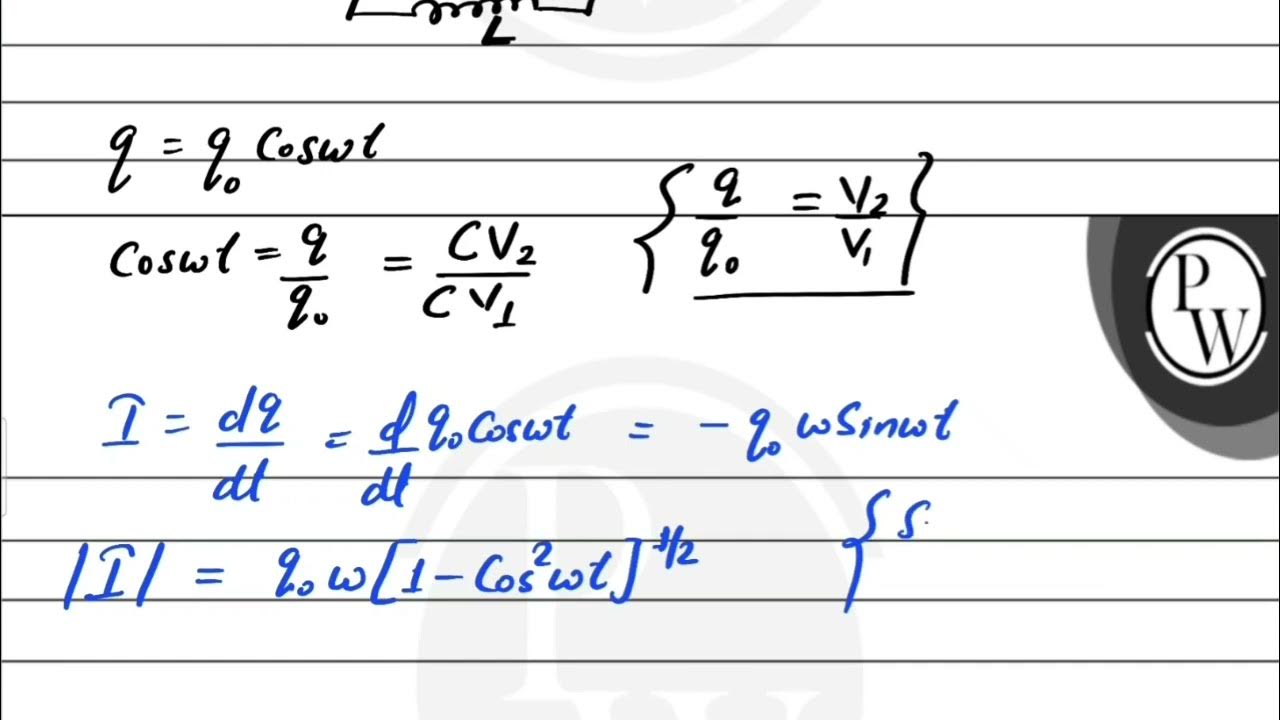 L
q = q₀ Coswt
Coswt = q/q₀ = CV₂/CV₁ { q/q₀ = V₂/V₁ }
I = dq/dt = d/dt q₀ Coswt = - q₀ w Sinwt
|I| = q₀ w [1 - Cos²wt]^1/2 { S
P
W